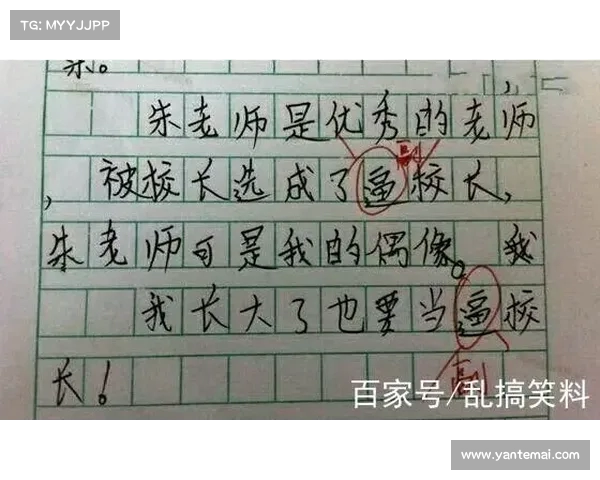 TG: MYYJJPP
朱。
朱老师是优秀的老师
副
，被校长选成了逼校长，
朱老师可是我的偶像。我
我长大了也要当逼校
长！
副
百家号/乱搞笑料
www.yantemai.com